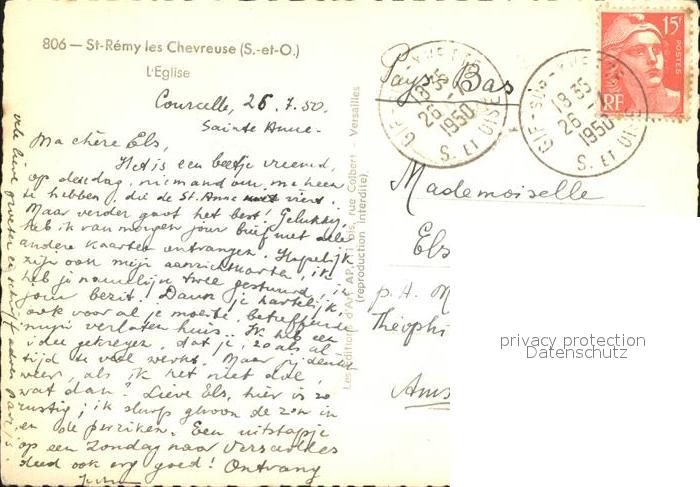 806 — St-Rémy les Chevreuse (S.-et-O.)
L'Eglise
Courcelle, 26.7.50.
Sainte Anne.
Ma chère Els,
Het is een beetje vreemd,
op deze dag, niemand om me heen
te hebben, die de St. Anne viert.
Maar verder gaat het best! Gelukkig
heb ik van morgen jouw brief met alle
andere kaarten ontvangen. Hopelijk
zijn ook mijn aanzichtkaarten, ik
heb je namelijk twee gestuurd, in
jouw bezit. Dank je hartelijk,
ook voor al je moeite, betreffende
mijn verlaten huis. Ik heb een
idee gekregen, dat je, zoals al-
tijd te veel werkt. Maar
weer, als ik het niet doe,
wat dan? Lieve Els, hier is zo
rustig; ik slurp gewoon de zon in
en de perziken. Een uitstapje
op een Zondag naar Versailles
deed ook erg goed! Ontvang
vele lieve groeten en
Les éditions d'Art "AP", 11 bis, rue Colbert - Versailles
(reproduction interdite).
Pays-Bas
GIF-SUR-YVETTE
18 35
26-7
1950
S. ET OISE
GIF-SUR-YVETTE
18 35
26-7
1950
S. ET OISE
15F
POSTES
RF
Mademoiselle
Els
p. A. M
Théophi
Ams
privacy protection
Datenschutz